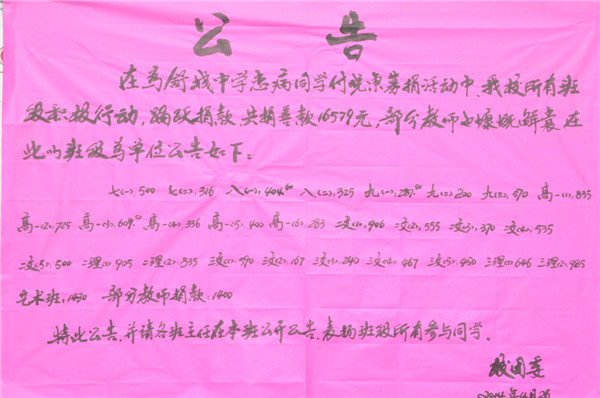 公告
在为舒城中学患病同学付晓东募捐活动中,我校所有班
级积极行动,踊跃捐款,共捐善款16579元,部分教师也慷慨解囊,在
此以班级为单位公告如下:
七(一),500 七(二),316 八(一),404 八(二),325 九(一),287 九(二),200 九(三),570 高一(1),835
高一(2),725 高一(3),609 高一(4),336 高一(5),400 高一(6),283 二文(1),906 二文(2),555 二文(3),370 二文(4),535
二文(5),500 二理(1),905 二理(2),835 三文(1),590 三文(2),167 三文(3),240 三文(4),467 三文(5),450 三理(1),646 三理(2),985
艺术班,1430 部分教师捐款,1400
特此公告,并请各班主任在本班公开公告,表扬班级所有参与同学。
校团委
2014年4月26